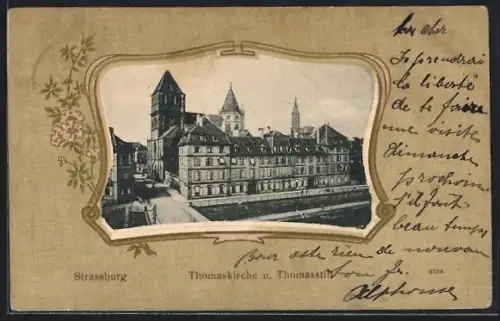 Mon cher
Je prendrai
la liberté
de te faire
une visite
dimanche
prochain
s'il fait
beau temps
Pour cette rien de nouveau
ton fr.
Alphonse
Strassburg
Thomaskirche u. Thomasstift